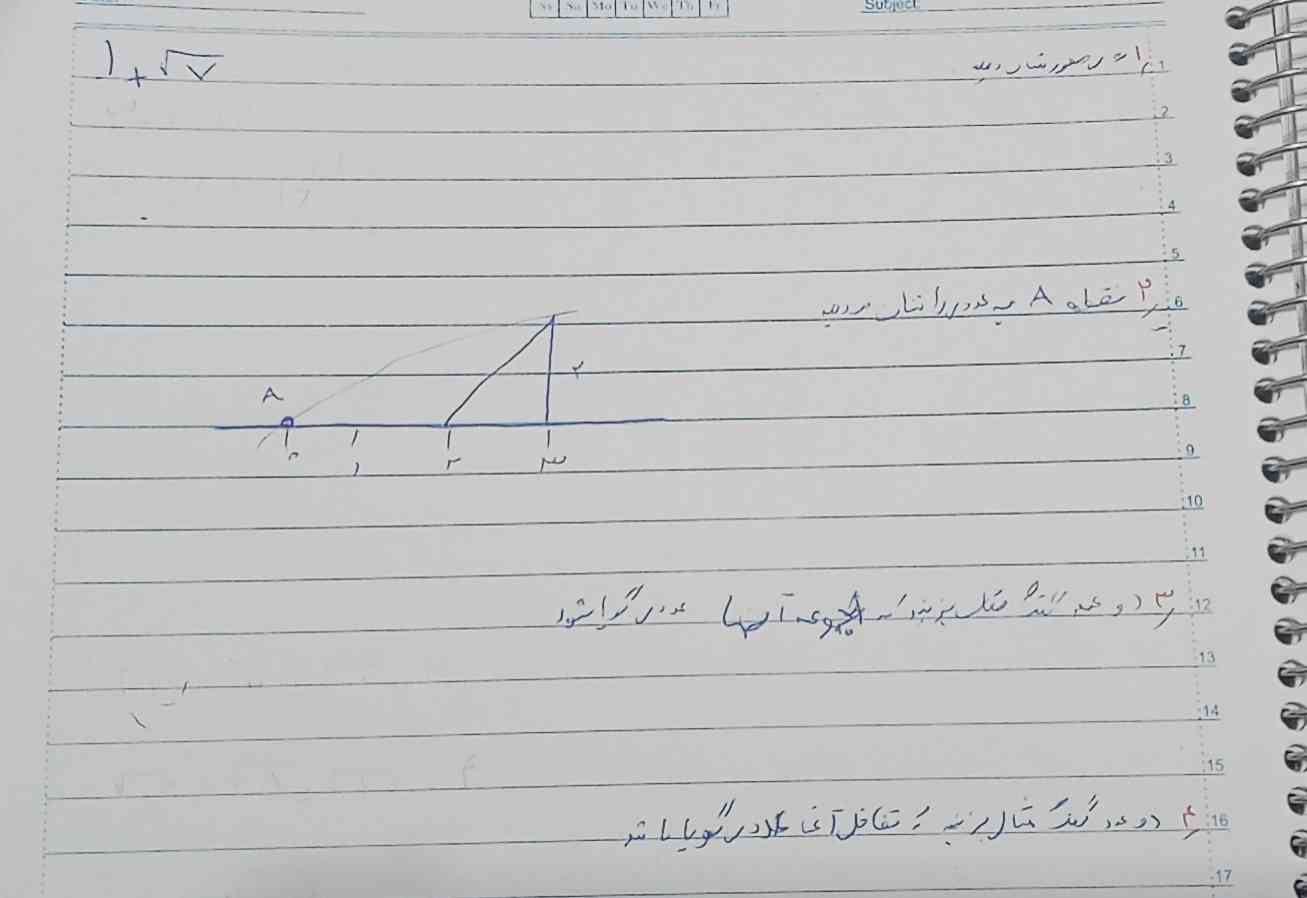 Sa Su Mo Tu We Th Fr
Subject
۱- روی محور نشان دهید
۱+√۷
1
2
3
4
5
6
۲- نقطه A چه عددی را نشان می‌دهد
7
A
۲
8
۰ ۱ ۲ ۳
9
10
11
12
۳- دو عدد گنگ مثال بزنید که مجموعه آنها عددی گویا شود
13
14
15
16
۴- دو عدد گنگ مثال بزنید که تفاضل آنها عددی گویا باشد
17